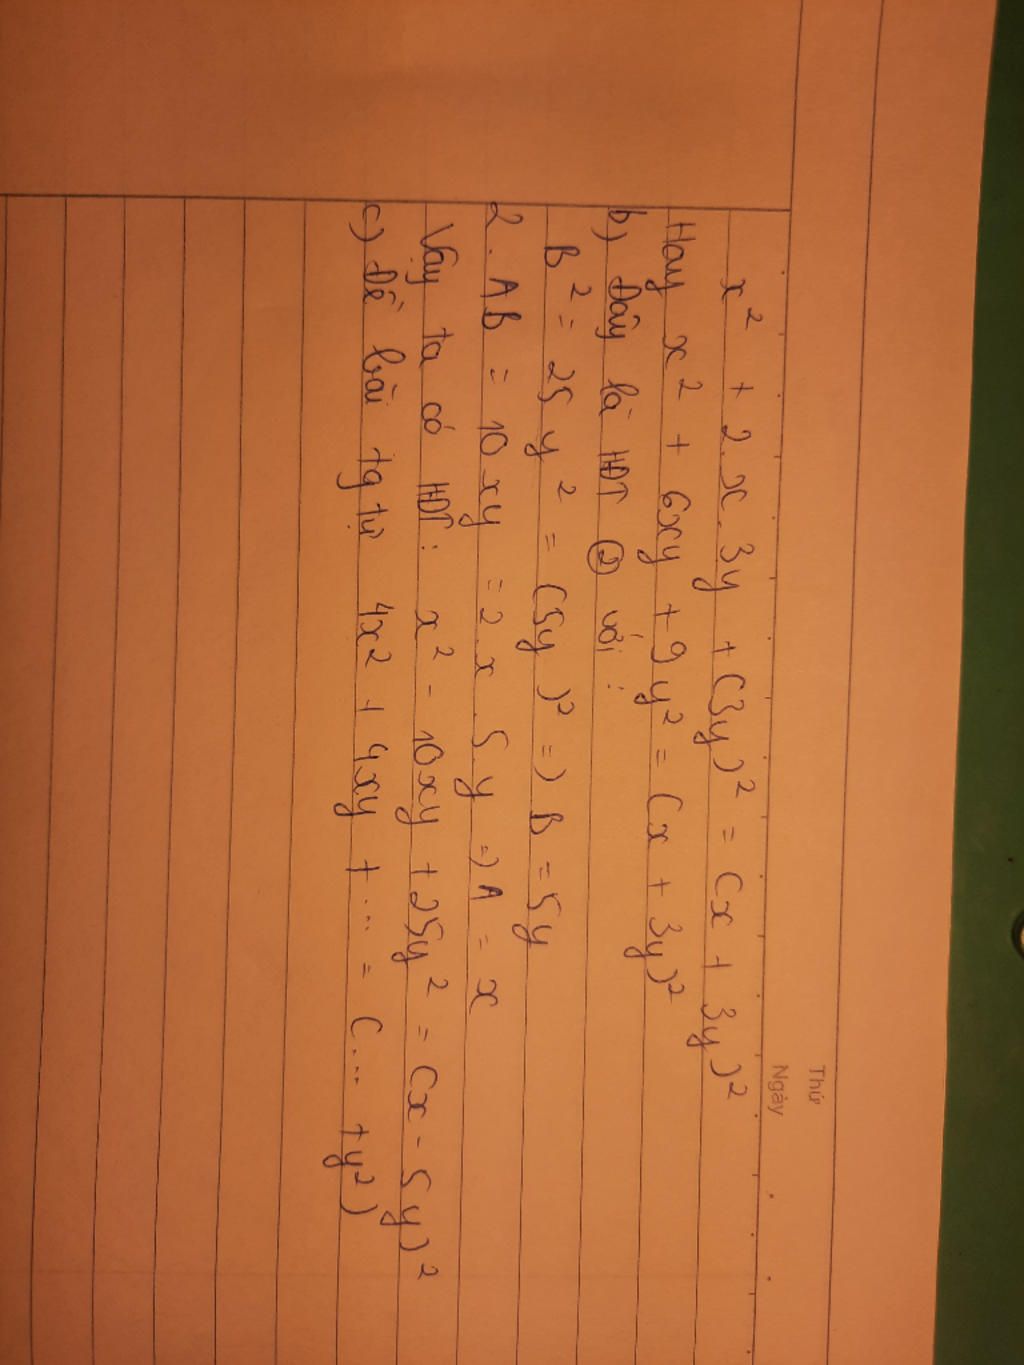 Thứ
Ngày
x² + 2.x.3y + (3y)² = (x + 3y)²
Hay x² + 6xy + 9y² = (x + 3y)²
b) Đây là HĐT ② với :
B² = 25y² = (5y)² => B = 5y
2.AB = 10xy = 2.x.5.y => A = x
Vậy ta có HĐT : x² - 10xy + 25y² = (x - 5y)²
c) Đề bài tg tự 4x² + 4xy + ... = (... + y²)